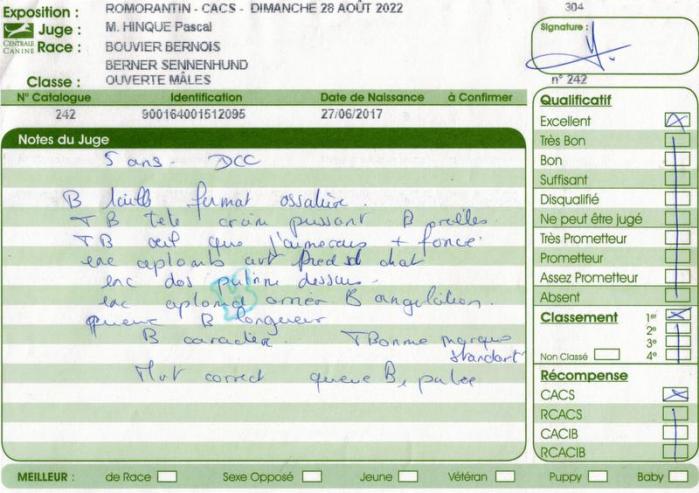 Exposition : ROMORANTIN - CACS - DIMANCHE 28 AOÛT 2022
304
CENTRALE CANINE
Juge : M. HINQUE Pascal
Signature :
Race : BOUVIER BERNOIS
BERNER SENNENHUND
Classe : OUVERTE MÂLES
n° 242
N° Catalogue Identification Date de Naissance à Confirmer
242 900164001512095 27/06/2017
Notes du Juge
5 ans - DCC
B taille format ossature.
TB tete crane puissant B oreilles.
TB œil que j'aimerais + foncé
exc aplomb avt pied de chat
exc dos poitrine dessus.
exc aplomb arrièr B angulation.
queue B longueur
B caractère. TBonne marque
standart
Mvt correct queue B, portée
Qualificatif
Excellent
Très Bon
Bon
Suffisant
Disqualifié
Ne peut être jugé
Très Prometteur
Prometteur
Assez Prometteur
Absent
Classement 1er
2e
3e
Non Classé 4e
Récompense
CACS
RCACS
CACIB
RCACIB
MEILLEUR : de Race Sexe Opposé Jeune Vétéran Puppy Baby